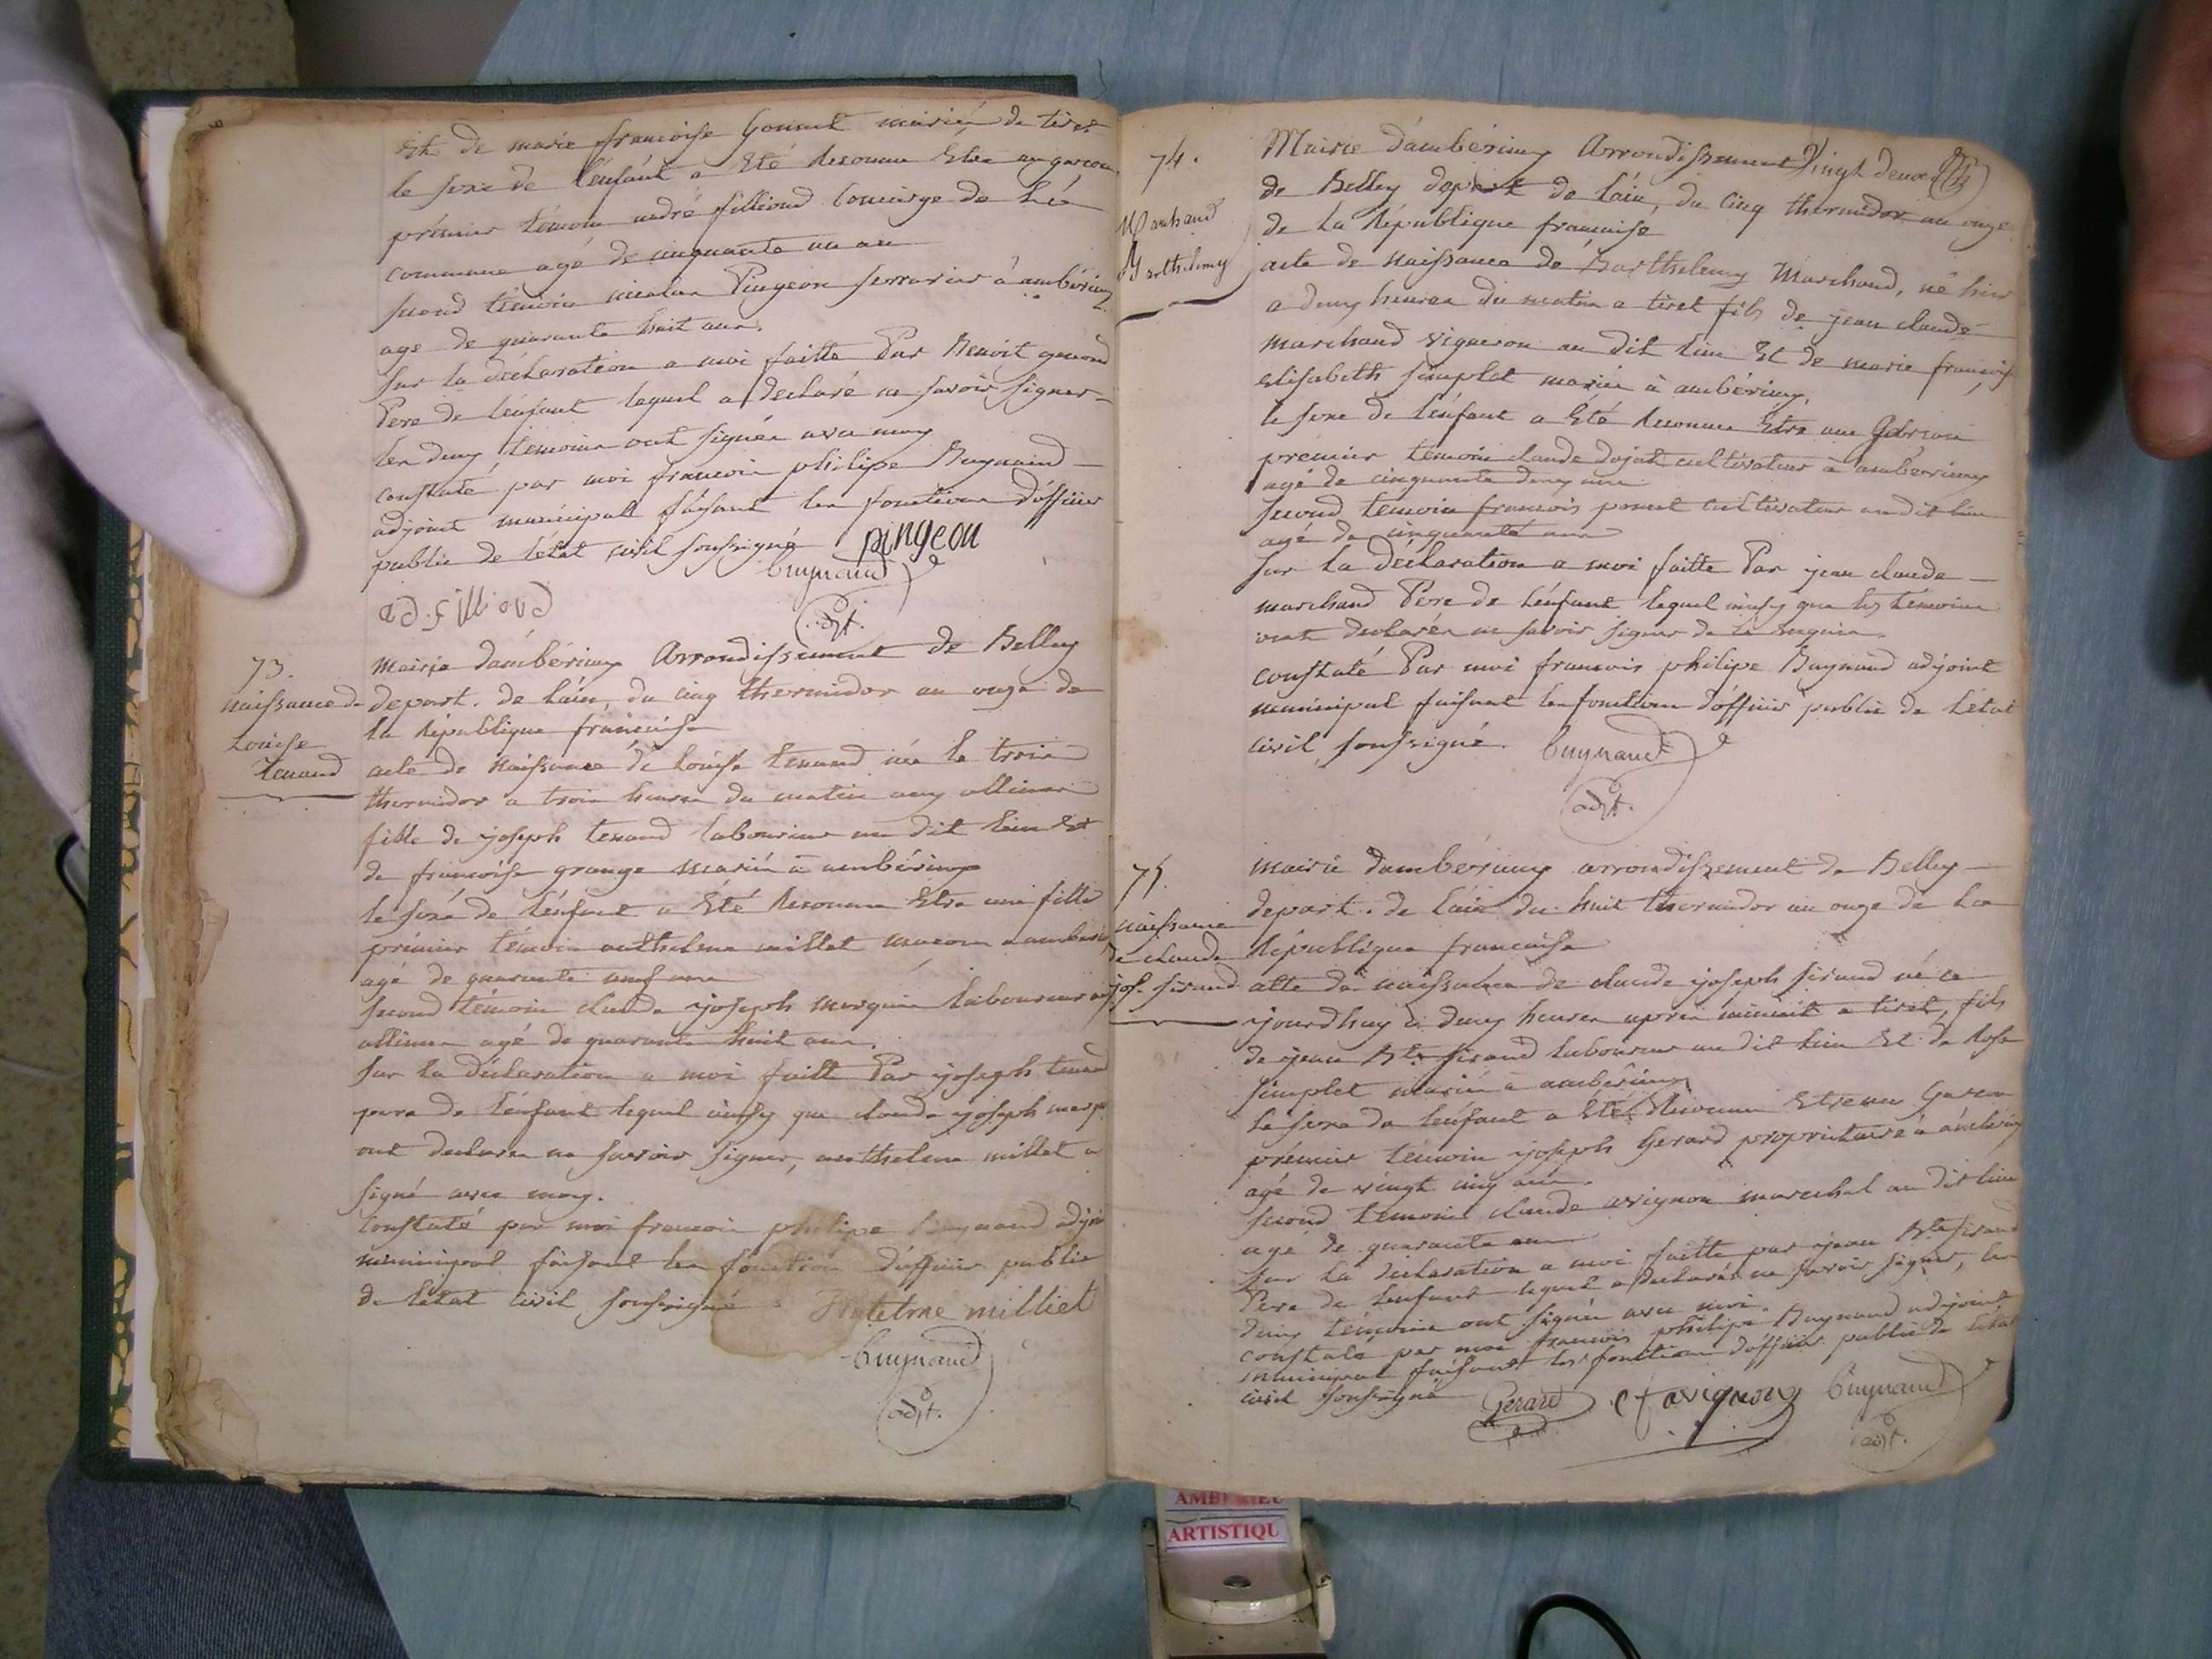 Et de marie françoise Gonnet mariés de tiret
le sexe de l'enfant a Eté Reconnu Etre un garçon
prémier témoin andré filliod concierge de la
commune agé de cinquante un an
second témoin nicolas Pingeon serrurier à ambérieux
age de quarante huit ans.
sur la déclaration a moi faitte Par Benoit
Pere de l'enfant lequel a declaré ne savoir signer
les deux témoins ont signés avec moy
constaté par moi francois philipe Buynand
adjoint municipal faisant les fonctions d'officier
public de l'état civil soussigné pingeon
Buynand
ad. filliod
adjt.
73.
naissance de
Louise
tenand
mairie d'ambérieux Arrondissement de Belley
depart. de l'ain, du cinq thermidor an onze de
la République francaise
acte de Naissance de Louise tenand née le trois
thermidor a trois heures du matin aux allimes
fille de joseph tenand laboureur au dit lieu Et
de francoise grange mariés à ambérieux
le sexe de l'enfant a Eté Reconnu Etre une fille
prémier témoin anthelme millet macon a ambérieux
agé de quarante neuf ans
second témoin claude joseph marquis laboureur aux
allimes agé de quarante huit ans.
sur la déclaration a moi faitte Par joseph tenand
pere de l'enfant lequel ainsy que claude joseph
ont declarés ne savoir signer, anthelme millet a
signé avec moy.
constaté par moi francois philipe Buynand adjoint
municipal faisant les fonctions d'officier public
de l'état civil soussigné Antelme milliet
Buynand
adjt.
Vingt deux
74.
Marchand
Barthelemy
Mairie d'ambérieux Arrondissement
de Belley depart de l'ain, du cinq thermidor an onze
de la République francaise
acte de Naissance de Barthelemy Marchand, né hier
a deux heures du matin a tiret fils de jean claude
marchand vigneron au dit lieu Et de marie françoise
elisabeth simplet mariés à ambérieux,
le sexe de l'enfant a Eté Reconnu Etre un Garcon
prémier témoin claude dujat cultivateur à ambérieux
agé de cinquante deux ans
second temoin francois ponut cultivateur au dit lieu
agé de cinquante ans
sur la Déclaration a moi faitte Par jean claude
marchand Pere de l'enfant lequel ainsy que les témoins
ont declarés ne savoir signer de ce requis.
constaté Par moi francois philipe Buynand adjoint
municipal faisant les fonctions d'officier public de l'état
civil soussigné. Buynand
adjt.
75.
naissance
de claude
jos. sirand
mairie d'ambérieux arrondissement de Belley
depart. de l'ain du huit thermidor an onze de la
République francaise
acte de naissance de claude joseph sirand né ce
jourdhuy à deux heures après minuit a tiret, fils
de jean Bte sirand laboureur au dit lieu Et de Rose
simplet mariés à ambérieux
le sexe de l'enfant a Eté Reconnu Etre un Garcon
prémier témoin joseph Gerard propriétaire à ambérieux
agé de vingt cinq ans.
second temoin claude avignon marechal au dit lieu
agé de quarante ans
sur la declaration a moi faitte par jean Bte sirand
Pere de l'enfant lequel a declaré ne savoir signer, les
deux témoins ont signés avec moi.
constaté par moi francois philipe Buynand adjoint
municipal faisant les fonctions d'officier public de l'état
civil soussigné Gerard Avignon Buynand
adjt.
AMBERIEU
ARTISTIQU